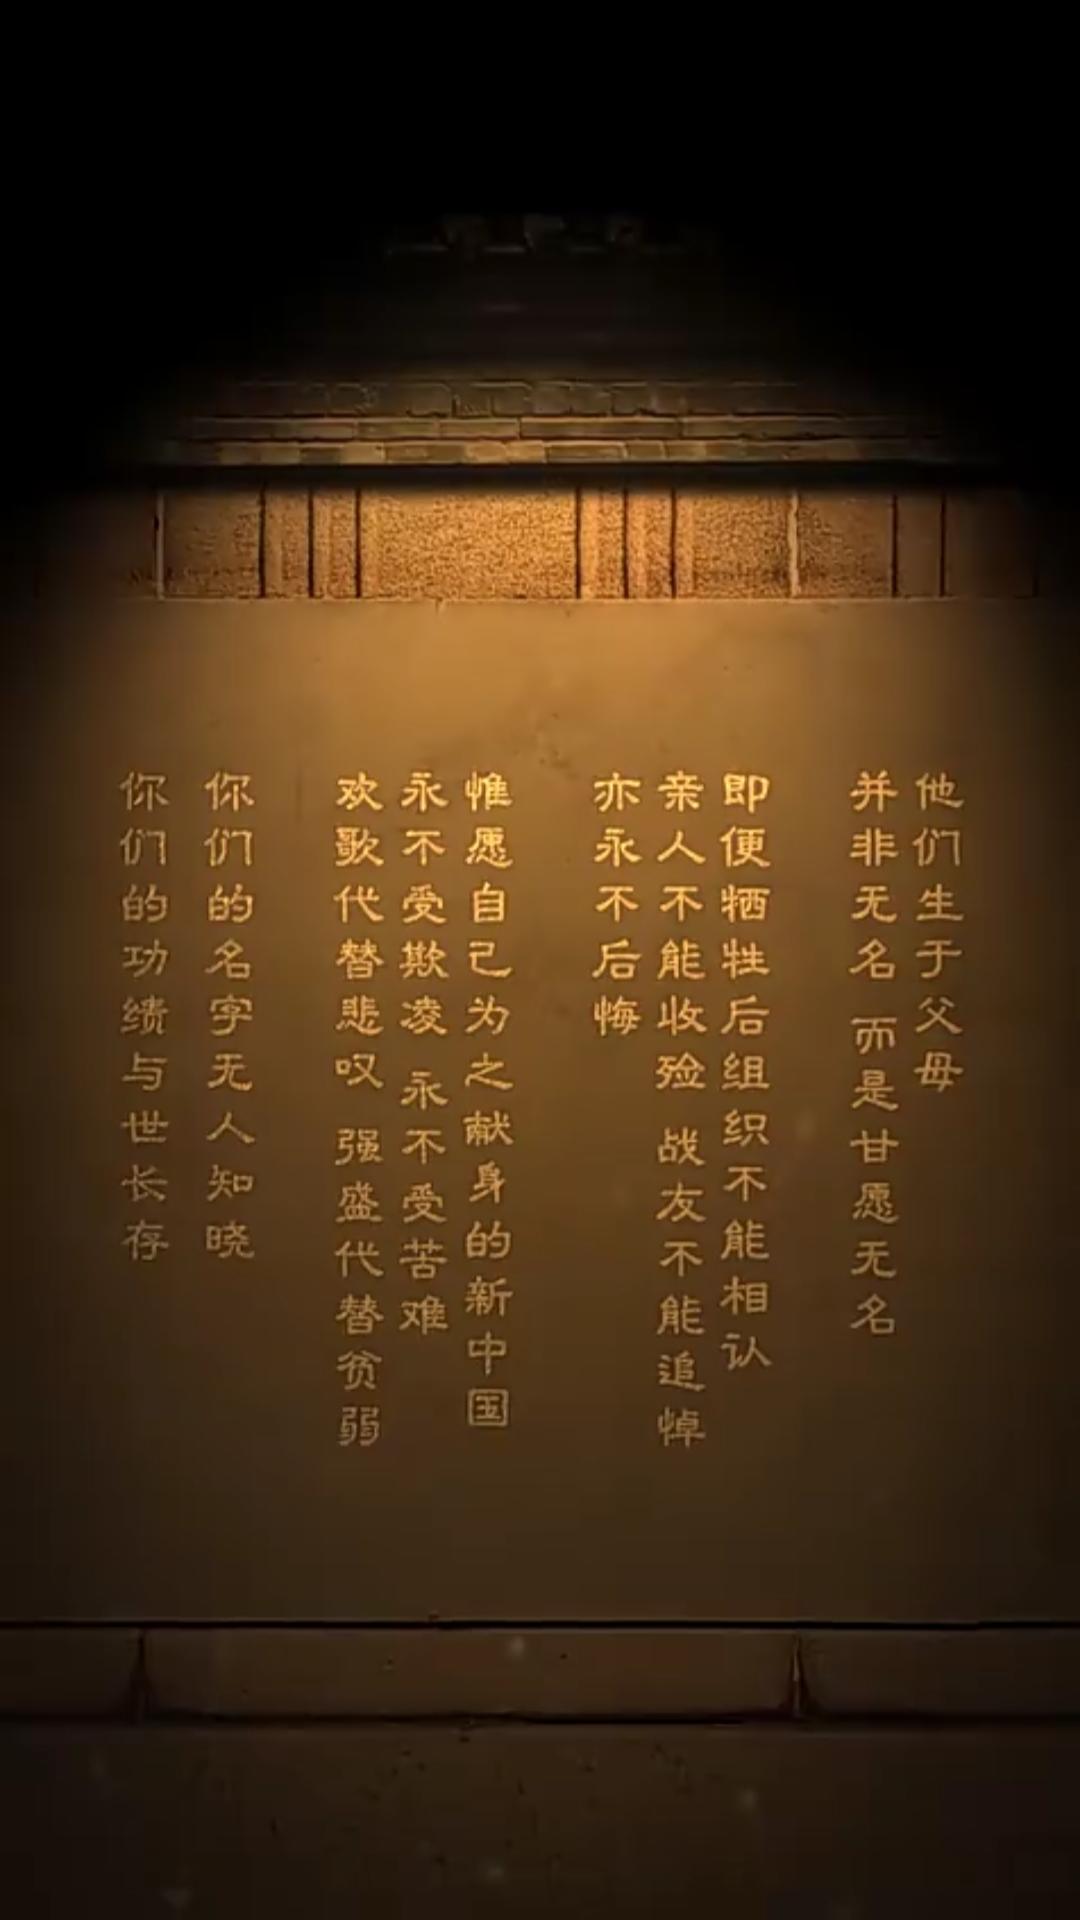 他们生于父母
并非无名 而是甘愿无名
即便牺牲后组织不能相认
亲人不能收殓 战友不能追悼
亦永不后悔
惟愿自己为之献身的新中国
永不受欺凌 永不受苦难
欢歌代替悲叹 强盛代替贫弱
你们的名字无人知晓
你们的功绩与世长存